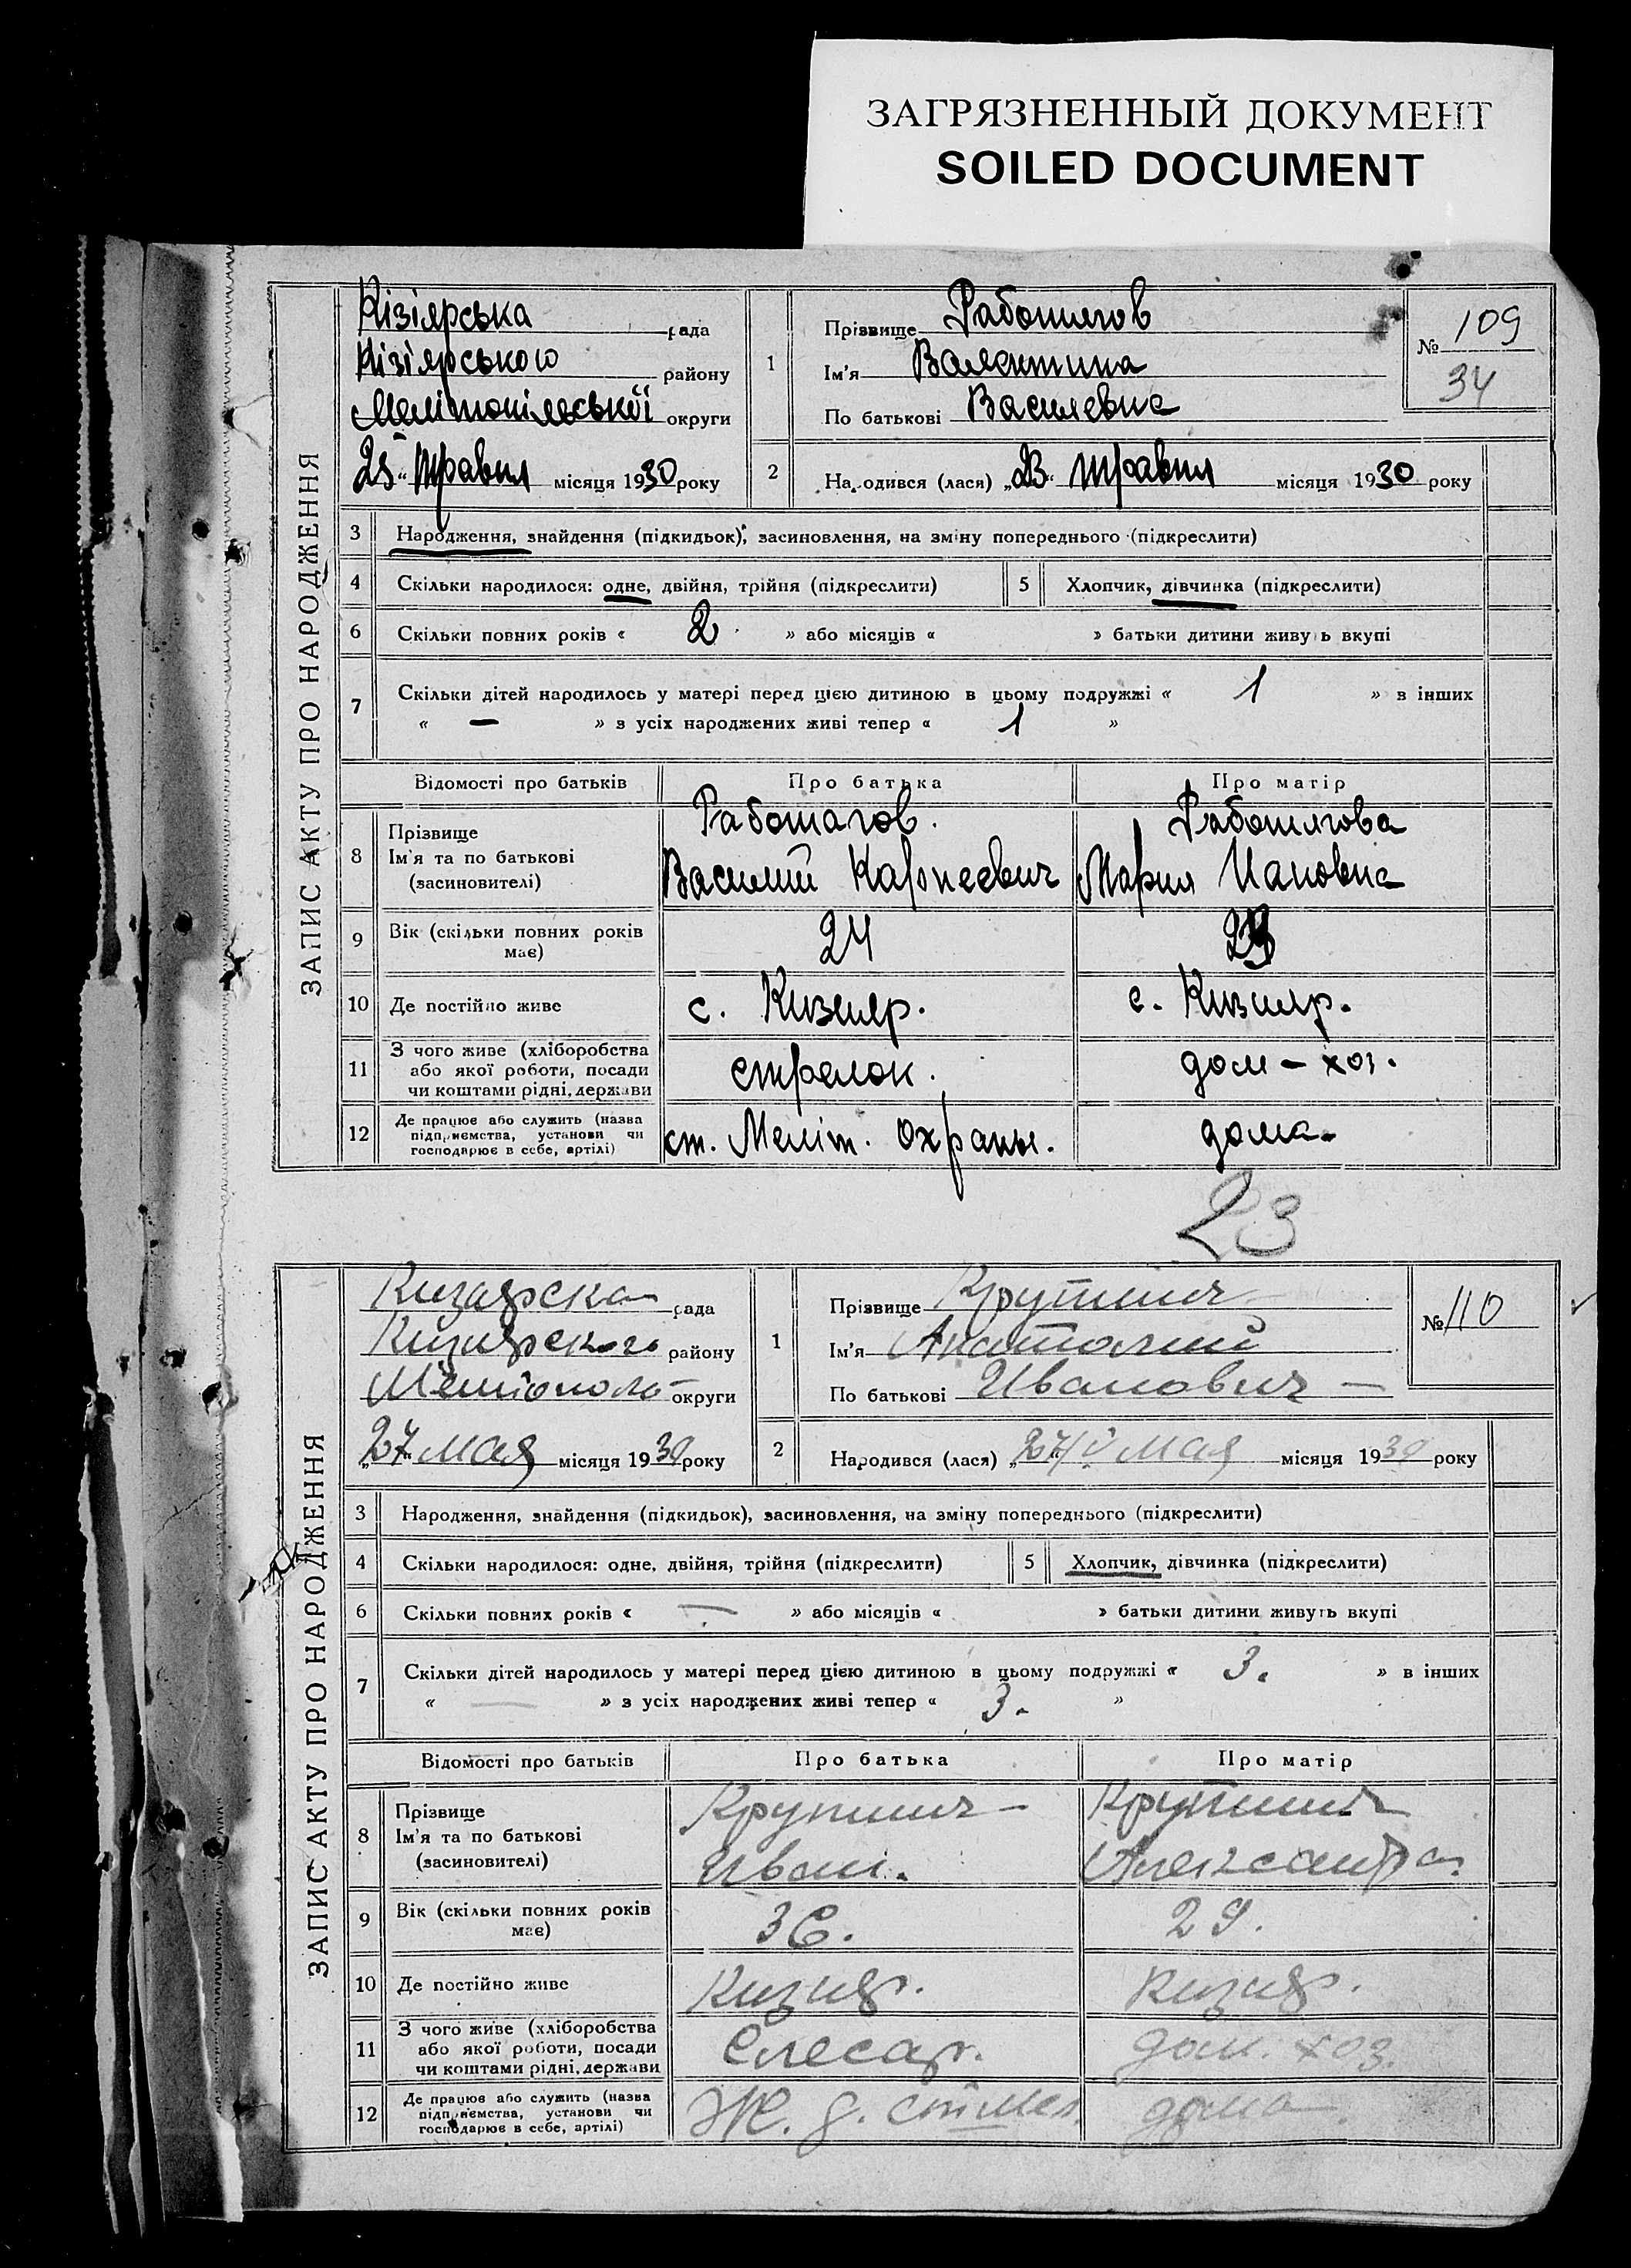 ЗАГРЯЗНЕННЫЙ ДОКУМЕНТ
SOILED DOCUMENT
ЗАПИС АКТУ ПРО НАРОДЖЕННЯ
Кізіярська рада
Кізіярського району
Мелітопільської округи
"25" травня місяця 1930 року
1 Прізвище Работягов
Ім'я Валентина
По батькові Василевна
№ 109
34
2 Народився (лася) „23" травня місяця 1930 року
3 Народження, знайдення (підкидьок), засиновлення, на зміну попереднього (підкреслити)
4 Скільки народилося: одне, двійня, трійня (підкреслити) 5 Хлопчик, дівчинка (підкреслити)
6 Скільки повних років « 2 » або місяців « » батьки дитини живуть вкупі
7 Скільки дітей народилось у матері перед цією дитиною в цьому подружжі « 1 » в інших
« — » з усіх народжених живі тепер « 1 »
Відомості про батьків Про батька Про матір
8 Прізвище Ім'я та по батькові (засиновителі) Работягов. Василий Карпеевич Работягова Мария Ивановна
9 Вік (скільки повних років має) 24
10 Де постійно живе с. Кизияр. с. Кизияр.
11 З чого живе (хліборобства або якої роботи, посади чи коштами рідні, держави стрелок. дом-хоз.
12 Де працює або служить (назва підприємства, установи чи господарює в себе, артілі) ст. Меліт. охраны. дома.
23
ЗАПИС АКТУ ПРО НАРОДЖЕННЯ
Кизиярска рада
Кизиярского району
Мелітополь округи
„27" мая місяця 1930 року
1 Прізвище
Ім'я Анатолий
По батькові Иванович —
№ 110
2 Народився (лася) „27/V мая місяця 1930 року
3 Народження, знайдення (підкидьок), засиновлення, на зміну попереднього (підкреслити)
4 Скільки народилося: одне, двійня, трійня (підкреслити) 5 Хлопчик, дівчинка (підкреслити)
6 Скільки повних років « — » або місяців « » батьки дитини живуть вкупі
7 Скільки дітей народилось у матері перед цією дитиною в цьому подружжі « 3. » в інших
« — » з усіх народжених живі тепер « 3. »
Відомості про батьків Про батька Про матір
8 Прізвище Ім'я та по батькові (засиновителі) Иван. Александра
9 Вік (скільки повних років має) 36. 29.
10 Де постійно живе Кизияр. Кизияр.
11 З чого живе (хліборобства або якої роботи, посади чи коштами рідні, держави Слесар. дом. хоз.
12 Де працює або служить (назва підприємства, установи чи господарює в себе, артілі) Ж. д. ст. Мел. дома.